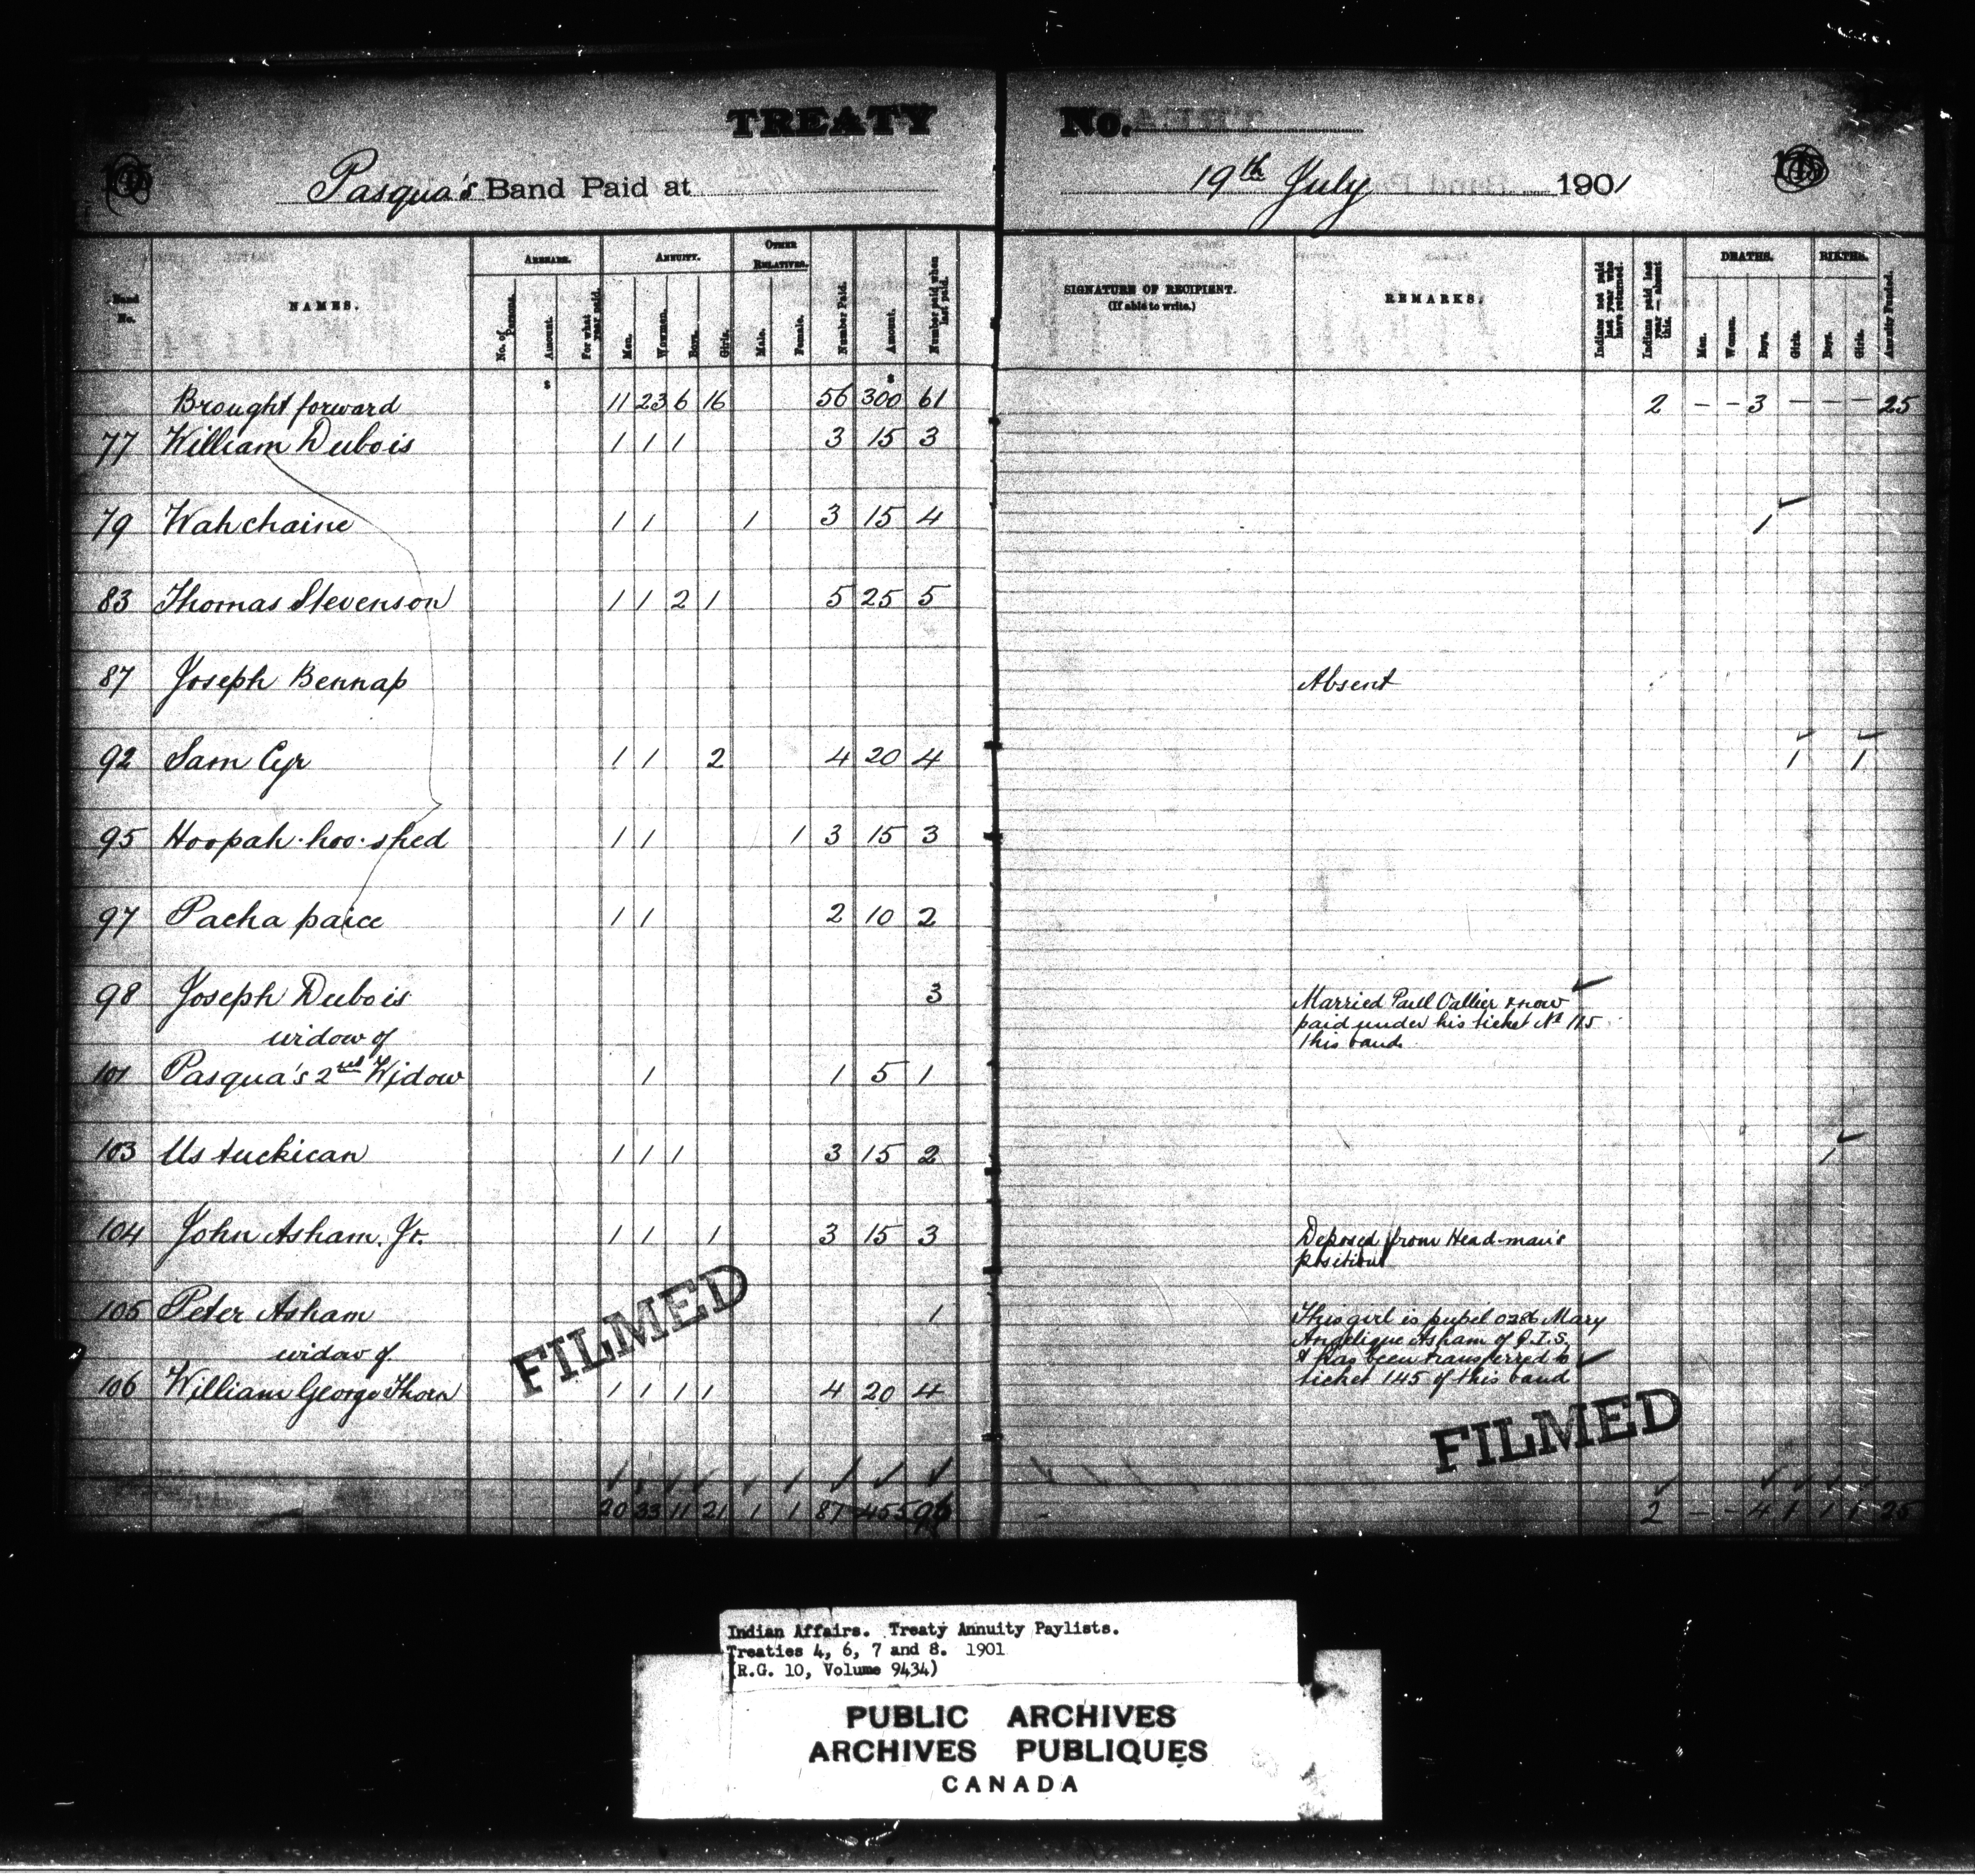 TREATY No.
Pasqua's Band Paid at 19th July 1901
Band No.
NAMES.
ARREARS.
No. of Persons.
Amount.
For what year paid.
ANNUITY.
Men.
Women.
Boys.
Girls.
OTHER RELATIVES.
Male.
Female.
Number Paid.
Amount.
Number paid when last paid.
SIGNATURE OF RECIPIENT.
(If able to write.)
REMARKS.
Indians not paid last year who have returned.
Indians paid last year — absent this.
DEATHS.
Men.
Women.
Boys.
Girls.
BIRTHS.
Boys.
Girls.
Annuity Funded.
$ $
Brought forward 11 23 6 16 56 300 61 2 - - 3 - - - 25
77 William Dubois 1 1 1 3 15 3
79 Wahchaine 1 1 1 3 15 4 1
83 Thomas Stevenson 1 1 2 1 5 25 5
87 Joseph Bennap Absent
92 Sam Cyr 1 1 2 4 20 4 1 1
95 Hoopah·hoo·shed 1 1 1 3 15 3
97 Pacha paice 1 1 2 10 2
98 Joseph Dubois 3 Married Paul & now
widow of paid under his ticket No 115
this band
101 Pasqua's 2nd Widow 1 1 5 1
103 Us tuckican 1 1 1 3 15 2 1
104 John Asham. Jr. 1 1 1 3 15 3 Deposed from Head-man's
position
105 Peter Asham 1 This girl is pupil 0286 Mary
Angelique Asham of Q.I.S.
widow of & has been transferred to
106 William George Thorn 1 1 1 1 4 20 4 ticket 145 of this band
FILMED
FILMED
20 33 11 21 1 1 87 455 96 2 - - 4 1 1 1 25
Indian Affairs. Treaty Annuity Paylists.
Treaties 4, 6, 7 and 8. 1901
(R.G. 10, Volume 9434)
PUBLIC ARCHIVES
ARCHIVES PUBLIQUES
CANADA